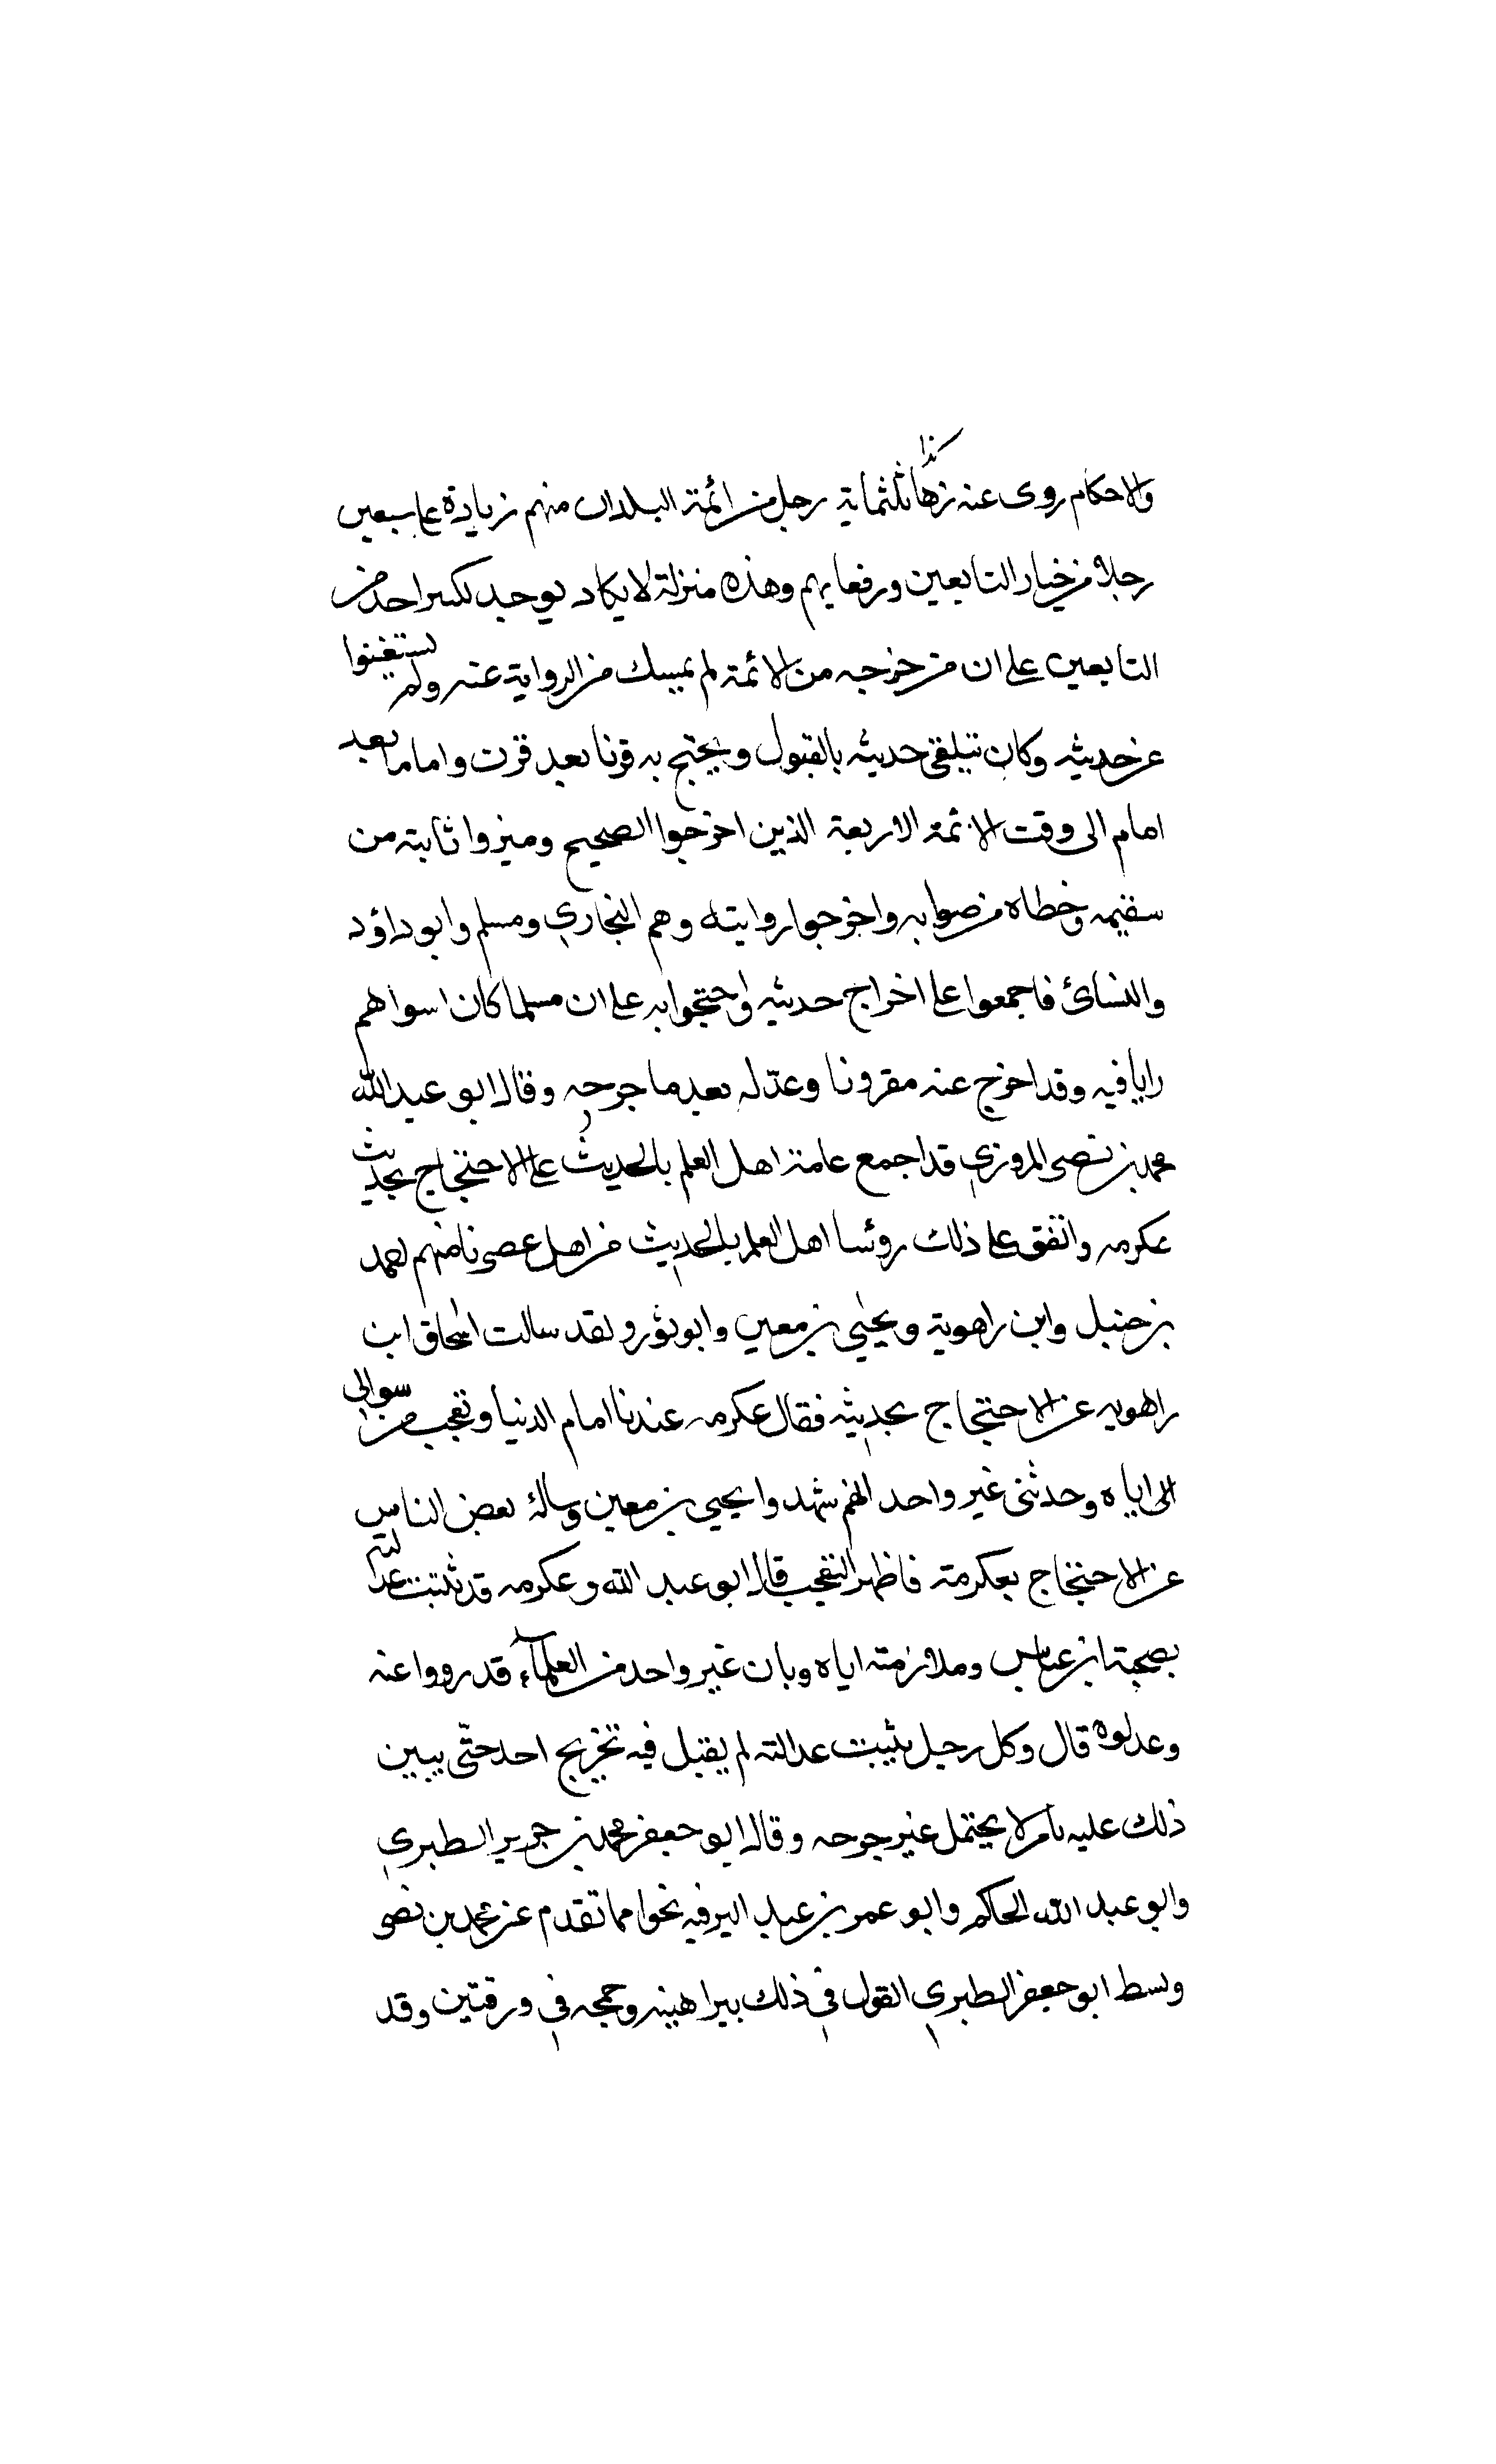 كذا
والاحكام روى عنه زها ثلثماية رجل من ائمة البلدان منهم زيادة على سبعين
رجلا من خيار التابعين ورفعايهم وهذه منزلة لا يكاد يوجد لكسر احد من
التابعين على ان من خرجه من الائمة لم يمسك من الرواية عنه ولم يستغنوا
عن حديثه وكان يتلقى حديثه بالقبول ويحتج به قرنا بعد قرن واماما بعد
امام الى وقت الائمة الاربعة الذين اخرجوا الصحيح وميزوا ثابته من
سقيمه وخطاه من صوابه واخرجوا روايته وهم البخاري ومسلم وابو داؤد
والنسائ فاجمعوا على اخراج حديثه واحتجوا به على ان مسلما كان اسواهم
رايا فيه وقد اخرج عنه مقرونا وعدّله بعد ما جرحه وقال ابو عبد الله
محمد بن نصر المروزي قد اجمع عامة اهل العلم بالحديث على الاحتجاج بحديث
عكرمه واتفق على ذلك روئسا اهل العلم بالحديث من اهل عصرنا منهم احمد
بن حنبل وابن راهوية ويحيي بن معين وابو ثور ولقد سالت اسحاق ابن
راهويه عن الاحتجاج بحديثه فقال عكرمه عندنا امام الدنيا وتعجب من سوالى
الى اياه وحدثنى غير واحد انهم شهدوا يحيي بن معين وساله بعض الناس
عن الاحتجاج بعكرمته فاظهر التعجب قال ابو عبد الله وعكرمه قد ثبتت عدالته
بصحبة ابن عباس وملازمته اياه وبان غير واحد من العلماء قد رووا عنه
وعدلوه قال وكل رجل يثبت عدالته لم يقبل فيه تخريج احد حتّى يبين
ذلك عليه بامر لا يحتمل غير جرحه وقال ابو جعفر محمد بن جرير الطبري
وابو عبد الله الحاكم وابو عمر بن عبد البر فيه نحوا مما تقدم عن محمد بن نصر
وبسط ابو جعفر الطبري القول في ذلك ببراهينه وحججه في ورقتين وقد